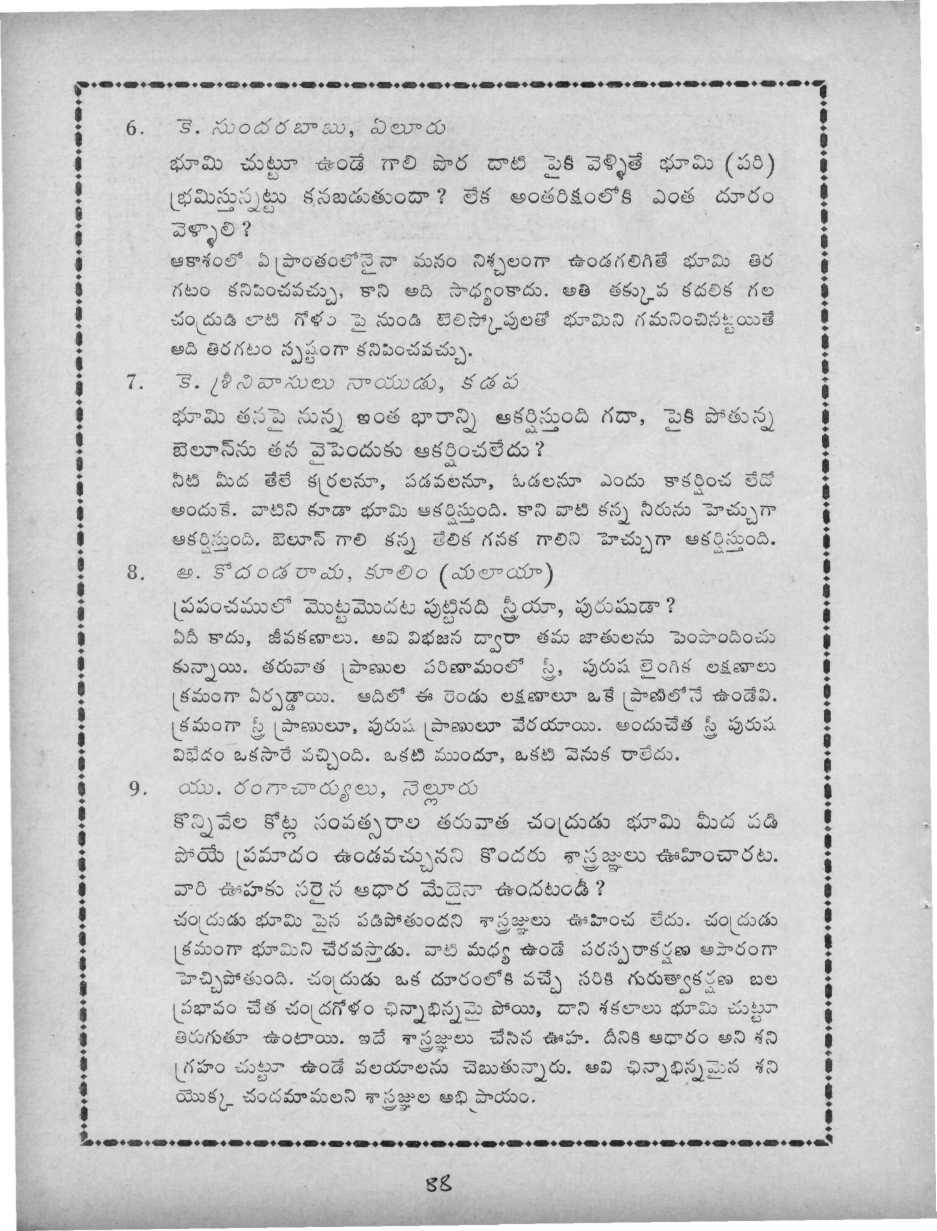 6. కె. సుందరబాబు, ఏలూరు
భూమి చుట్టూ ఉండే గాలి పొర దాటి పైకి వెళ్ళితే భూమి (పరి)
భ్రమిస్తున్నట్టు కనబడుతుందా? లేక అంతరిక్షంలోకి ఎంత దూరం
వెళ్ళాలి?
ఆకాశంలో ఏ ప్రాంతంలోనైనా మనం నిశ్చలంగా ఉండగలిగితే భూమి తిర
గటం కనిపించవచ్చు, కాని అది సాధ్యంకాదు. అతి తక్కువ కదలిక గల
చంద్రుడి లాటి గోళం పై నుండి టెలిస్కోపులతో భూమిని గమనించినట్టయితే
అది తిరగటం స్పష్టంగా కనిపించవచ్చు.
7. కె. శ్రీనివాసులు నాయుడు, కడప
భూమి తనపై నున్న ఇంత భారాన్ని ఆకర్షిస్తుంది గదా, పైకి పోతున్న
బెలూన్‌ను తన వైపెందుకు ఆకర్షించలేదు?
నీటి మీద తేలే కర్రలనూ, పడవలనూ, ఓడలనూ ఎందు కాకర్షించ లేదో
అందుకే. వాటిని కూడా భూమి ఆకర్షిస్తుంది. కాని వాటి కన్న నీరును హెచ్చుగా
ఆకర్షిస్తుంది. బెలూన్ గాలి కన్న తేలిక గనక గాలిని హెచ్చుగా ఆకర్షిస్తుంది.
8. అ. కోదండరామ, కూలిం (మలాయా)
ప్రపంచములో మొట్టమొదట పుట్టినది స్త్రీయా, పురుషుడా?
ఏదీ కాదు, జీవకణాలు. అవి విభజన ద్వారా తమ జాతులను పెంపొందించు
కున్నాయి. తరువాత ప్రాణుల పరిణామంలో స్త్రీ, పురుష లైంగిక లక్షణాలు
క్రమంగా ఏర్పడ్డాయి. ఆదిలో ఈ రెండు లక్షణాలూ ఒకే ప్రాణిలోనే ఉండేవి.
క్రమంగా స్త్రీ ప్రాణులూ, పురుష ప్రాణులూ వేరయాయి. అందుచేత స్త్రీ పురుష
విభేదం ఒకసారే వచ్చింది. ఒకటి ముందూ, ఒకటి వెనుక రాలేదు.
9. యు. రంగాచార్యులు, నెల్లూరు
కొన్నివేల కోట్ల సంవత్సరాల తరువాత చంద్రుడు భూమి మీద పడి
పోయే ప్రమాదం ఉండవచ్చునని కొందరు శాస్త్రజ్ఞులు ఊహించారట.
వారి ఊహకు సరైన ఆధార మేదైనా ఉందటండీ?
చంద్రుడు భూమి పైన పడిపోతుందని శాస్త్రజ్ఞులు ఊహించ లేదు. చంద్రుడు
క్రమంగా భూమిని చేరవస్తాడు. వాటి మధ్య ఉండే పరస్పరాకర్షణ అపారంగా
హెచ్చిపోతుంది. చంద్రుడు ఒక దూరంలోకి వచ్చే సరికి గురుత్వాకర్షణ బల
ప్రభావం చేత చంద్రగోళం ఛిన్నాభిన్నమై పోయి, దాని శకలాలు భూమి చుట్టూ
తిరుగుతూ ఉంటాయి. ఇదే శాస్త్రజ్ఞులు చేసిన ఊహ. దీనికి ఆధారం అని శని
గ్రహం చుట్టూ ఉండే వలయాలను చెబుతున్నారు. అవి ఛిన్నాభిన్నమైన శని
యొక్క చందమామలని శాస్త్రజ్ఞుల అభిప్రాయం.
88